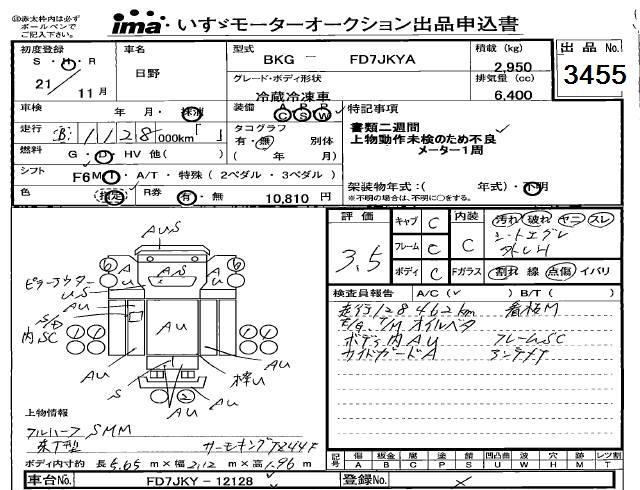 ※赤太枠内は必ず
ボールペンで
ご記入下さい
ima・いすゞモーターオークション出品申込書
初度登録
S・H・R
21/11月
車名
日野
型式
BKG － FD7JKYA
グレード・ボディ形状
冷蔵冷凍車
積載 (kg)
2,950
排気量 (cc)
6,400
出品 No.
3455
車検 年 月・抹消
装備
A C
P S
P W
特記事項
書類二週間
上物動作未検のため不良
メーター1周
走行 1128 000km「 」
タコグラフ
有・無 別体
( 年 月)
燃料 G・D・HV 他( )
シフト F6 MT・A/T・特殊 (2ペダル・3ペダル)
架装物年式:( 年式)・不明
※不明の場合は、不明に○をする。
色 指定 R券 有・無 10,810 円
評価 3.5
キャブ C
フレーム C
ボディ C
内装 C
Fガラス
汚れ 破れ ヤニ スレ
シートエグレ
割れ 線 点傷 イバリ
検査員報告 A/C(✓ ) B/T( )
走行128462km 看板M
E/G、T/M オイルヘタ
ボディ内AU フレームSC
サイドガードA
AUS
AS
AU
ピラーアウター
US
AU
S/D
内SC
AU
AU
AU
S
AU
棒U
AU
上物情報
フルハーフ SMM
東丁型 サーモキング T244F
ボディ内寸約 長 5.65 m×幅 2.12 m×高 1.96 m
記号
傷 A
板金 B
腐 C
塗 P
錆 S
凹凸曲 U
波 W
穴 H
跡 M
レツ割 T
車台No. FD7JKY － 12128
登録No. ×